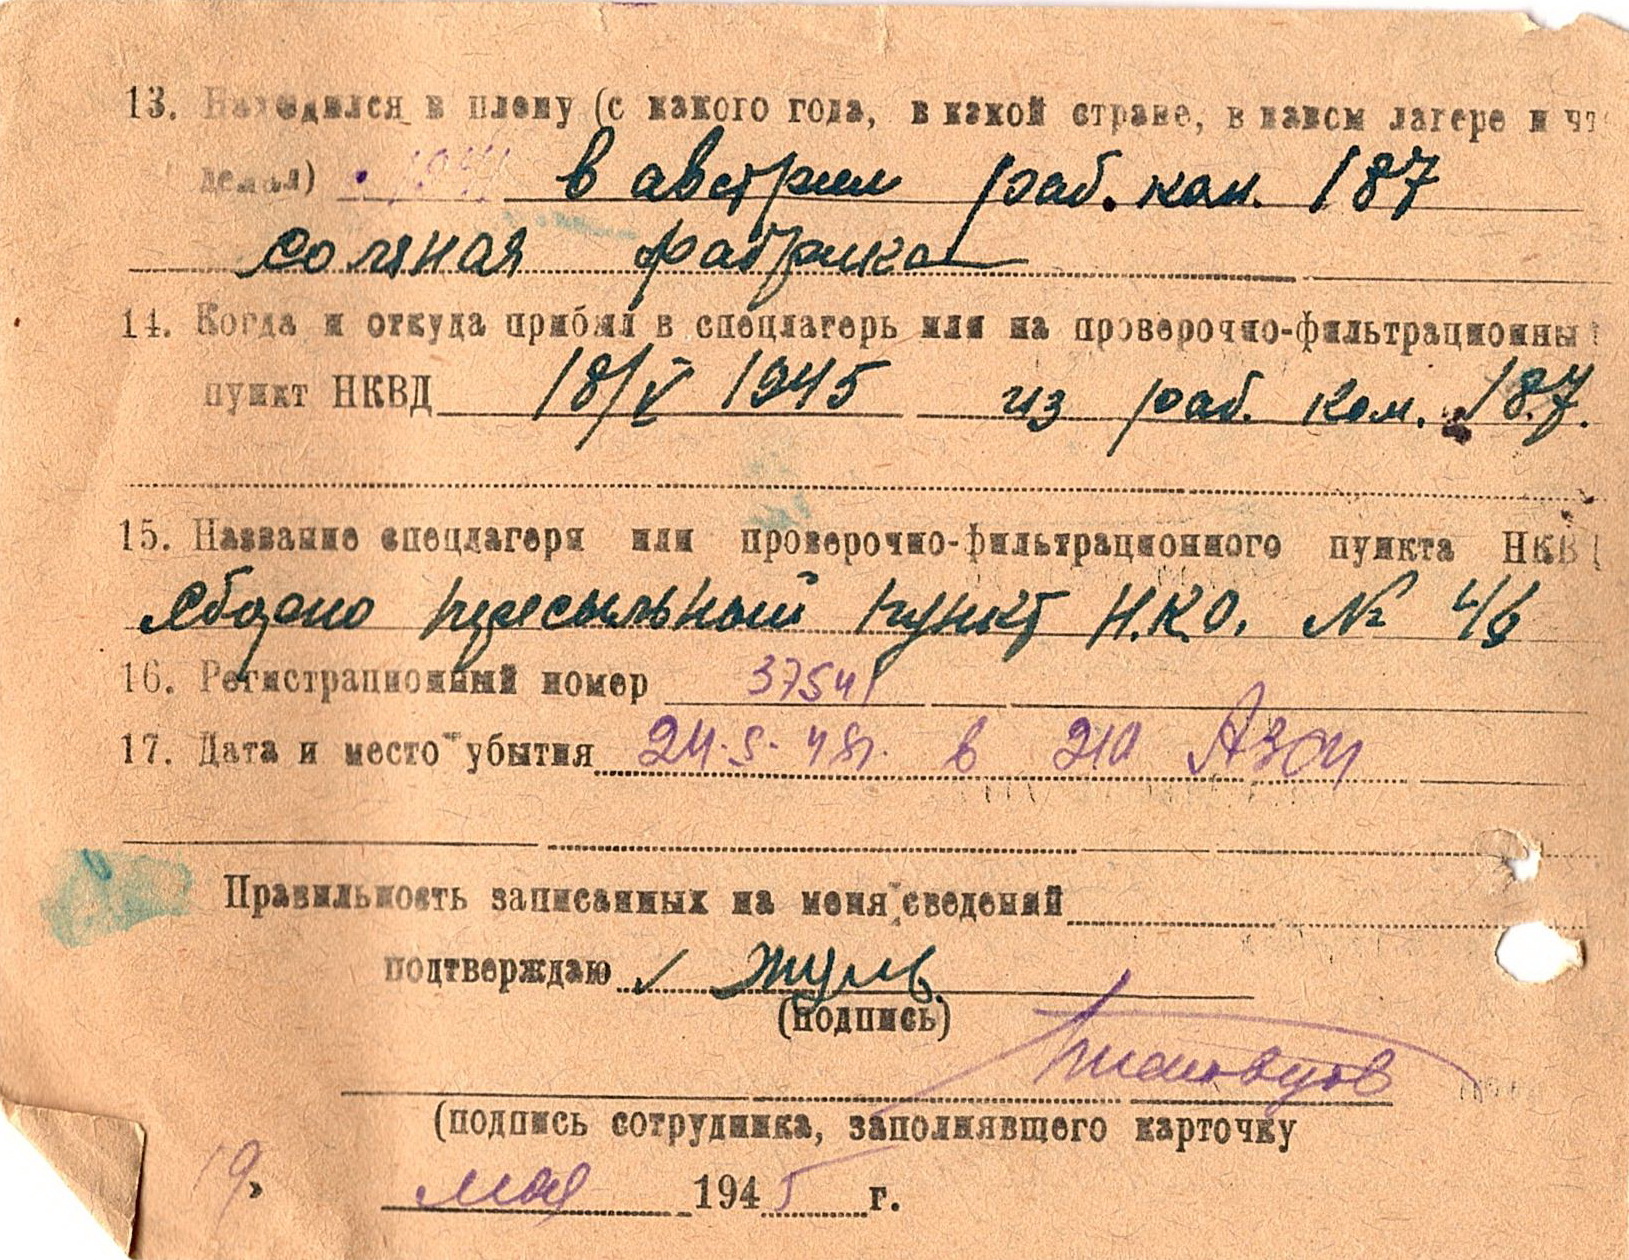 13. Находился в плену (с какого года, в какой стране, в каком лагере и что
делал) в австрии раб. ком. 187
соляная фабрика
14. Когда и откуда прибыл в спецлагерь или на проверочно-фильтрационны
пункт НКВД 18/V 1945 из раб. ком. 187.
15. Название спецлагеря или проверочно-фильтрационного пункта НКВ
Сборно пересыльный пункт Н.К.О. № 46
16. Регистрационный номер 37541
17. Дата и место убытия 24.5.45г. в 210 АЗСП
Правильность записанных на меня сведений
подтверждаю ✓ Жуль
(подпись)
(подпись сотрудника, заполнявшего карточку
19» мая 1945 г.